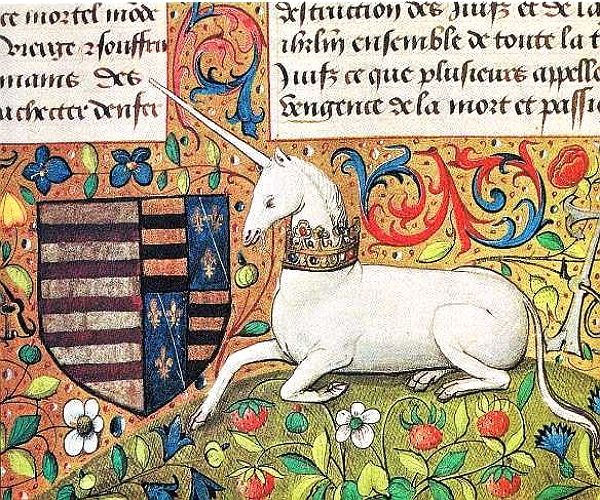 ce mortel mōde
vierge ⁊ souffri
mains des
achetter denfer
destruction des Juifz et de la
ihrlm ensemble de toute la t
Juifz ce que plusieurs appelle
Vengence de la mort et passi